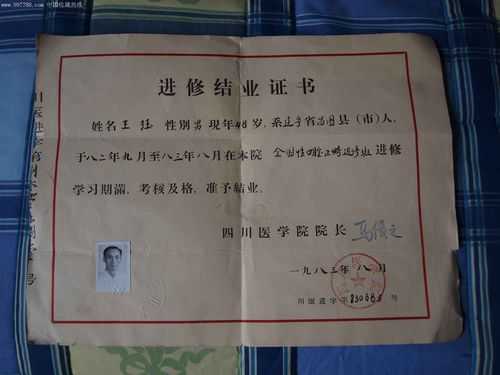 www.997788.com 中国收藏热线
进修结业证书
姓名王 性别男现年48岁，系辽宁省昌图县（市）人，
于八二年九月至八三年八月在本院 全国性口腔正畸进修班 进修
学习期满，考核及格，准予结业。
四川医学院院长
一九八三年八月
川医进字第 号